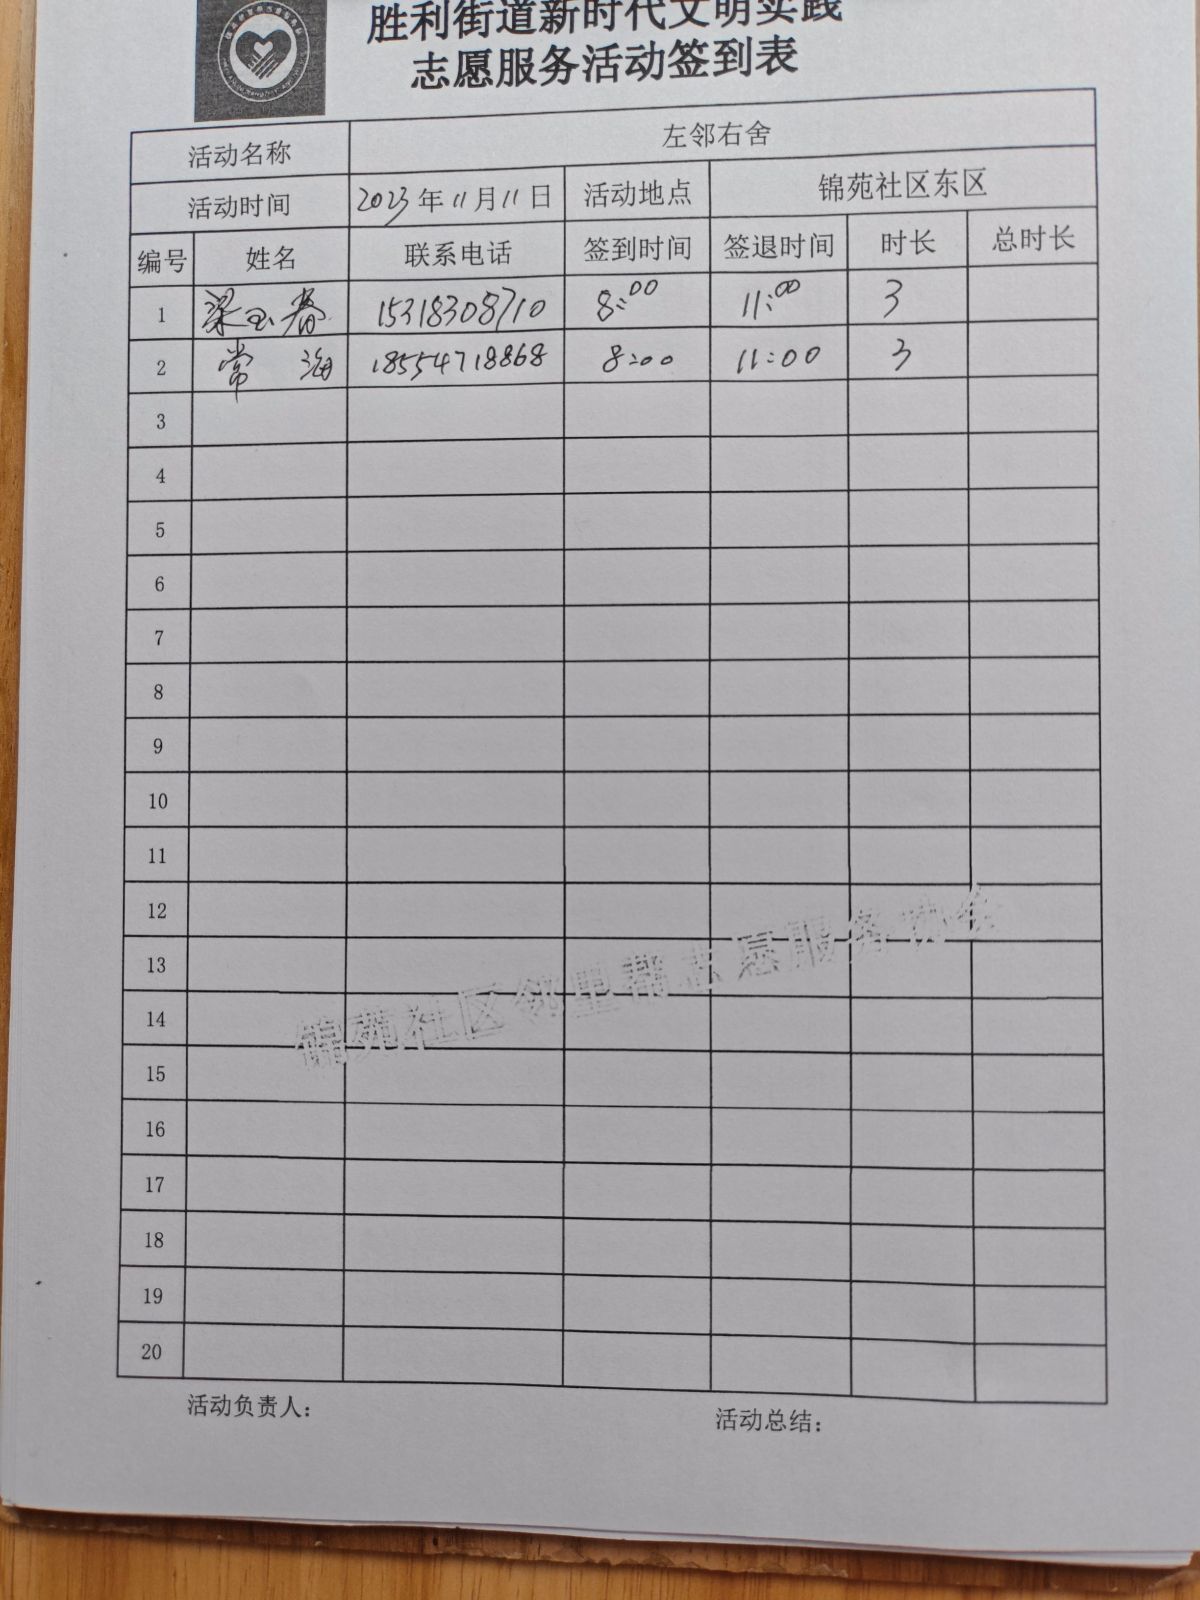 胜利街道新时代文明实践
志愿服务活动签到表
活动名称 左邻右舍
活动时间 2023年11月11日 活动地点 锦苑社区东区
编号 姓名 联系电话 签到时间 签退时间 时长 总时长
1 梁玉春 15318308710 8:00 11:00 3
2 常海 18554718868 8:00 11:00 3
3
4
5
6
7
8
9
10
11
12
13
14
15
16
17
18
19
20
锦苑社区邻里帮志愿服务协会
活动负责人: 活动总结: